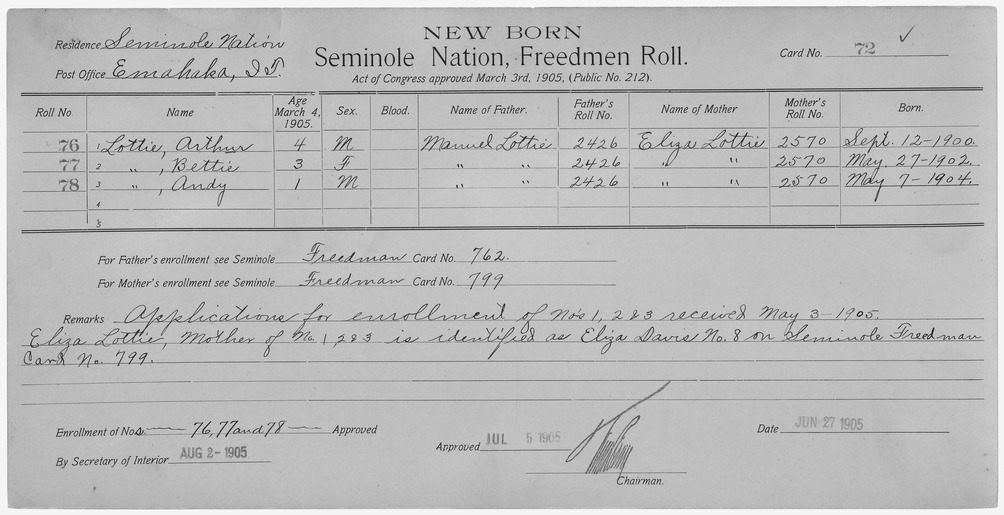 NEW BORN
Seminole Nation, Freedmen Roll.
Act of Congress approved March 3rd, 1905, (Public No. 212).
Residence Seminole Nation
Post Office Emahaka, I.T.
Card No. 72 ✓
Roll No Name Age March 4, 1905. Sex. Blood. Name of Father. Father's Roll No. Name of Mother Mother's Roll No. Born.
76 1 Lottie, Arthur 4 M Manuel Lottie 2426 Eliza Lottie 2570 Sept. 12-1900.
77 2 " , Bettie 3 F " " 2426 " " 2570 May 27-1902.
78 3 " , Andy 1 M " " 2426 " " 2570 May 7-1904.
4
5
For Father's enrollment see Seminole Freedman Card No. 762.
For Mother's enrollment see Seminole Freedman Card No. 799
Remarks Applications for enrollment of Nos 1, 2&3 received May 3-1905.
Eliza Lottie, Mother of No. 1, 2&3 is identified as Eliza Davis No. 8 on Seminole Freedman
Card No. 799.
Enrollment of Nos. 76, 77 and 78 Approved
By Secretary of Interior AUG 2-1905
Approved JUL 5 1905
Chairman.
Date JUN 27 1905